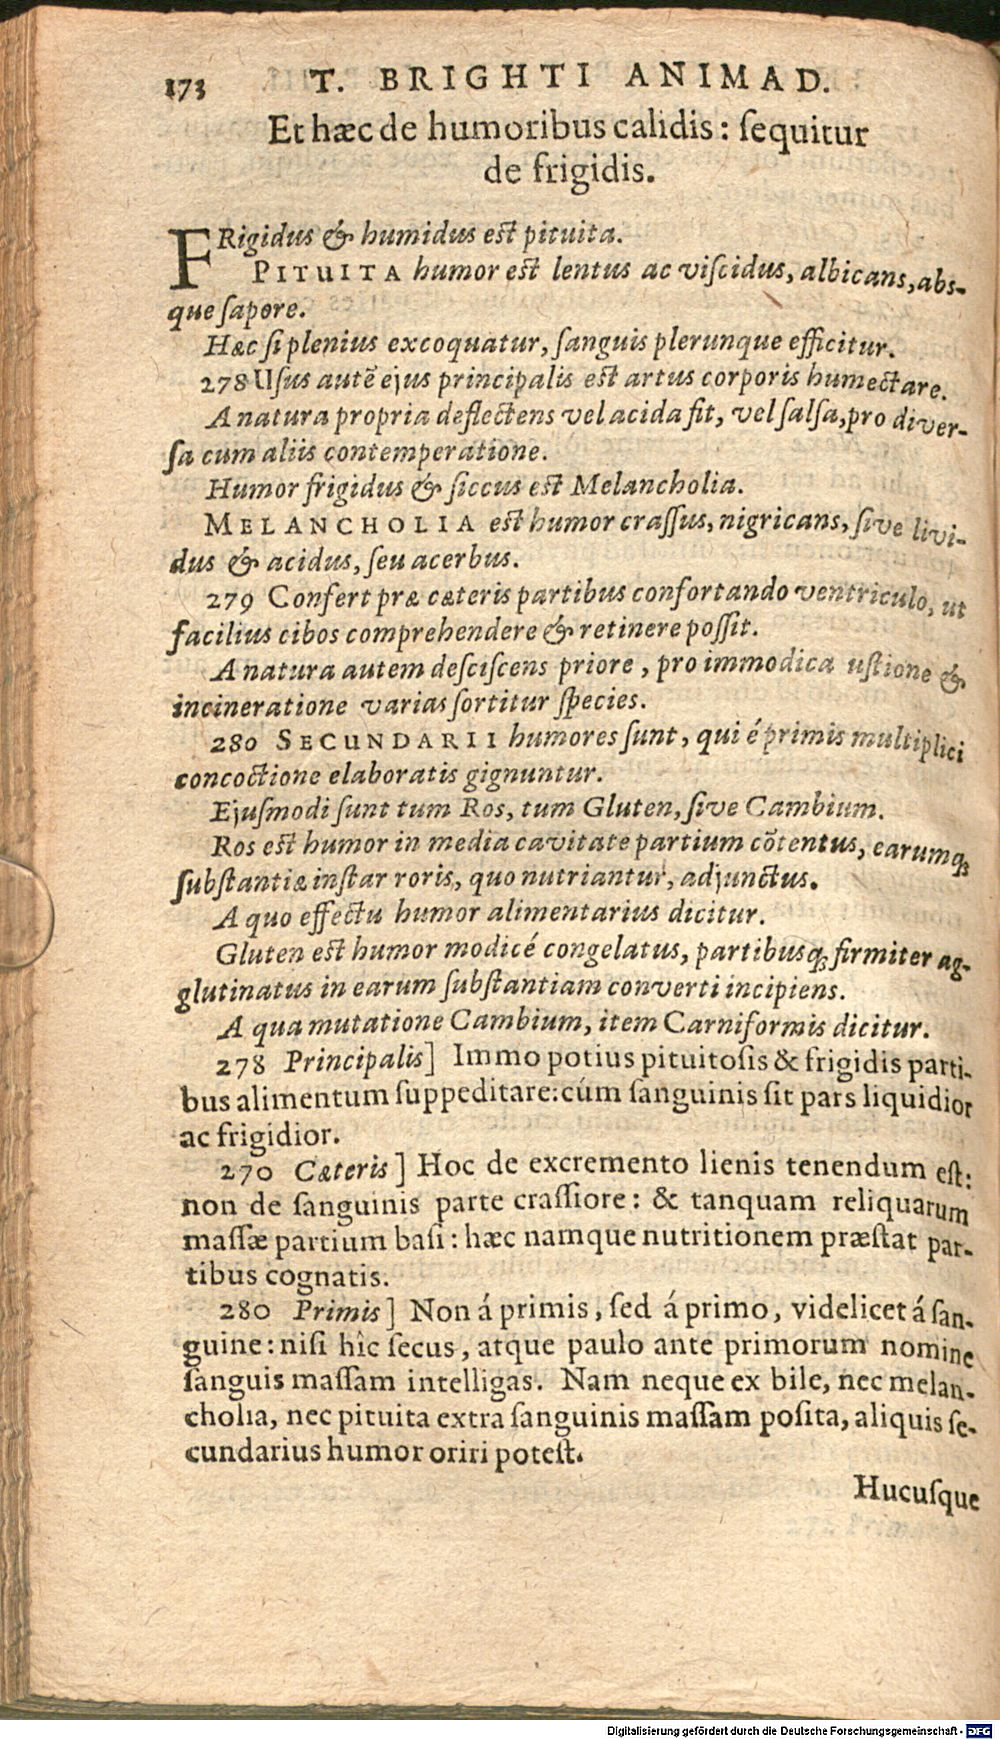 173 T. BRIGHTI ANIMAD.
Et hæc de humoribus calidis: ſequitur
de frigidis.
FRigidus & humidus est pituita.
PITUITA humor est lentus ac viſcidus, albicans, abs-
que ſapore.
Hæc ſi plenius excoquatur, ſanguis plerunque efficitur.
278 Uſus autẽ ejus principalis est artus corporis humectare.
A natura propria deflectens vel acida fit, vel ſalſa, pro diver-
ſa cum aliis contemperatione.
Humor frigidus & ſiccus est Melancholia.
MELANCHOLIA est humor craſſus, nigricans, ſive livi-
dus & acidus, ſeu acerbus.
279 Confert præ cæteris partibus confortando ventriculo, ut
facilius cibos comprehendere & retinere poſſit.
A natura autem deſciſcens priore, pro immodica ustione &
incineratione varias ſortitur ſpecies.
280 SECUNDARII humores ſunt, qui é primis multiplici
concoctione elaboratis gignuntur.
Ejuſmodi ſunt tum Ros, tum Gluten, ſive Cambium.
Ros est humor in media cavitate partium cõtentus, earumq́ꝫ
ſubſtantiæ inſtar roris, quo nutriantur, adjunctus.
A quo effectu humor alimentarius dicitur.
Gluten est humor modicé congelatus, partibusqꝫ firmiter ag-
glutinatus in earum ſubſtantiam converti incipiens.
A qua mutatione Cambium, item Carniformis dicitur.
278 Principalis] Immo potius pituitoſis & frigidis parti-
bus alimentum ſuppeditare: cúm ſanguinis ſit pars liquidior
ac frigidior.
270 Cæteris] Hoc de excremento lienis tenendum eſt:
non de ſanguinis parte craſſiore: & tanquam reliquarum
maſſæ partium baſi: hæc namque nutritionem præſtat par-
tibus cognatis.
280 Primis] Non á primis, ſed á primo, videlicet á ſan-
guine: niſi hîc ſecus, atque paulo ante primorum nomine
ſanguis maſſam intelligas. Nam neque ex bile, nec melan-
cholia, nec pituita extra ſanguinis maſſam poſita, aliquis ſe-
cundarius humor oriri poteſt.
Hucuſque
Digitalisierung gefördert durch die Deutsche Forschungsgemeinschaft - DFG